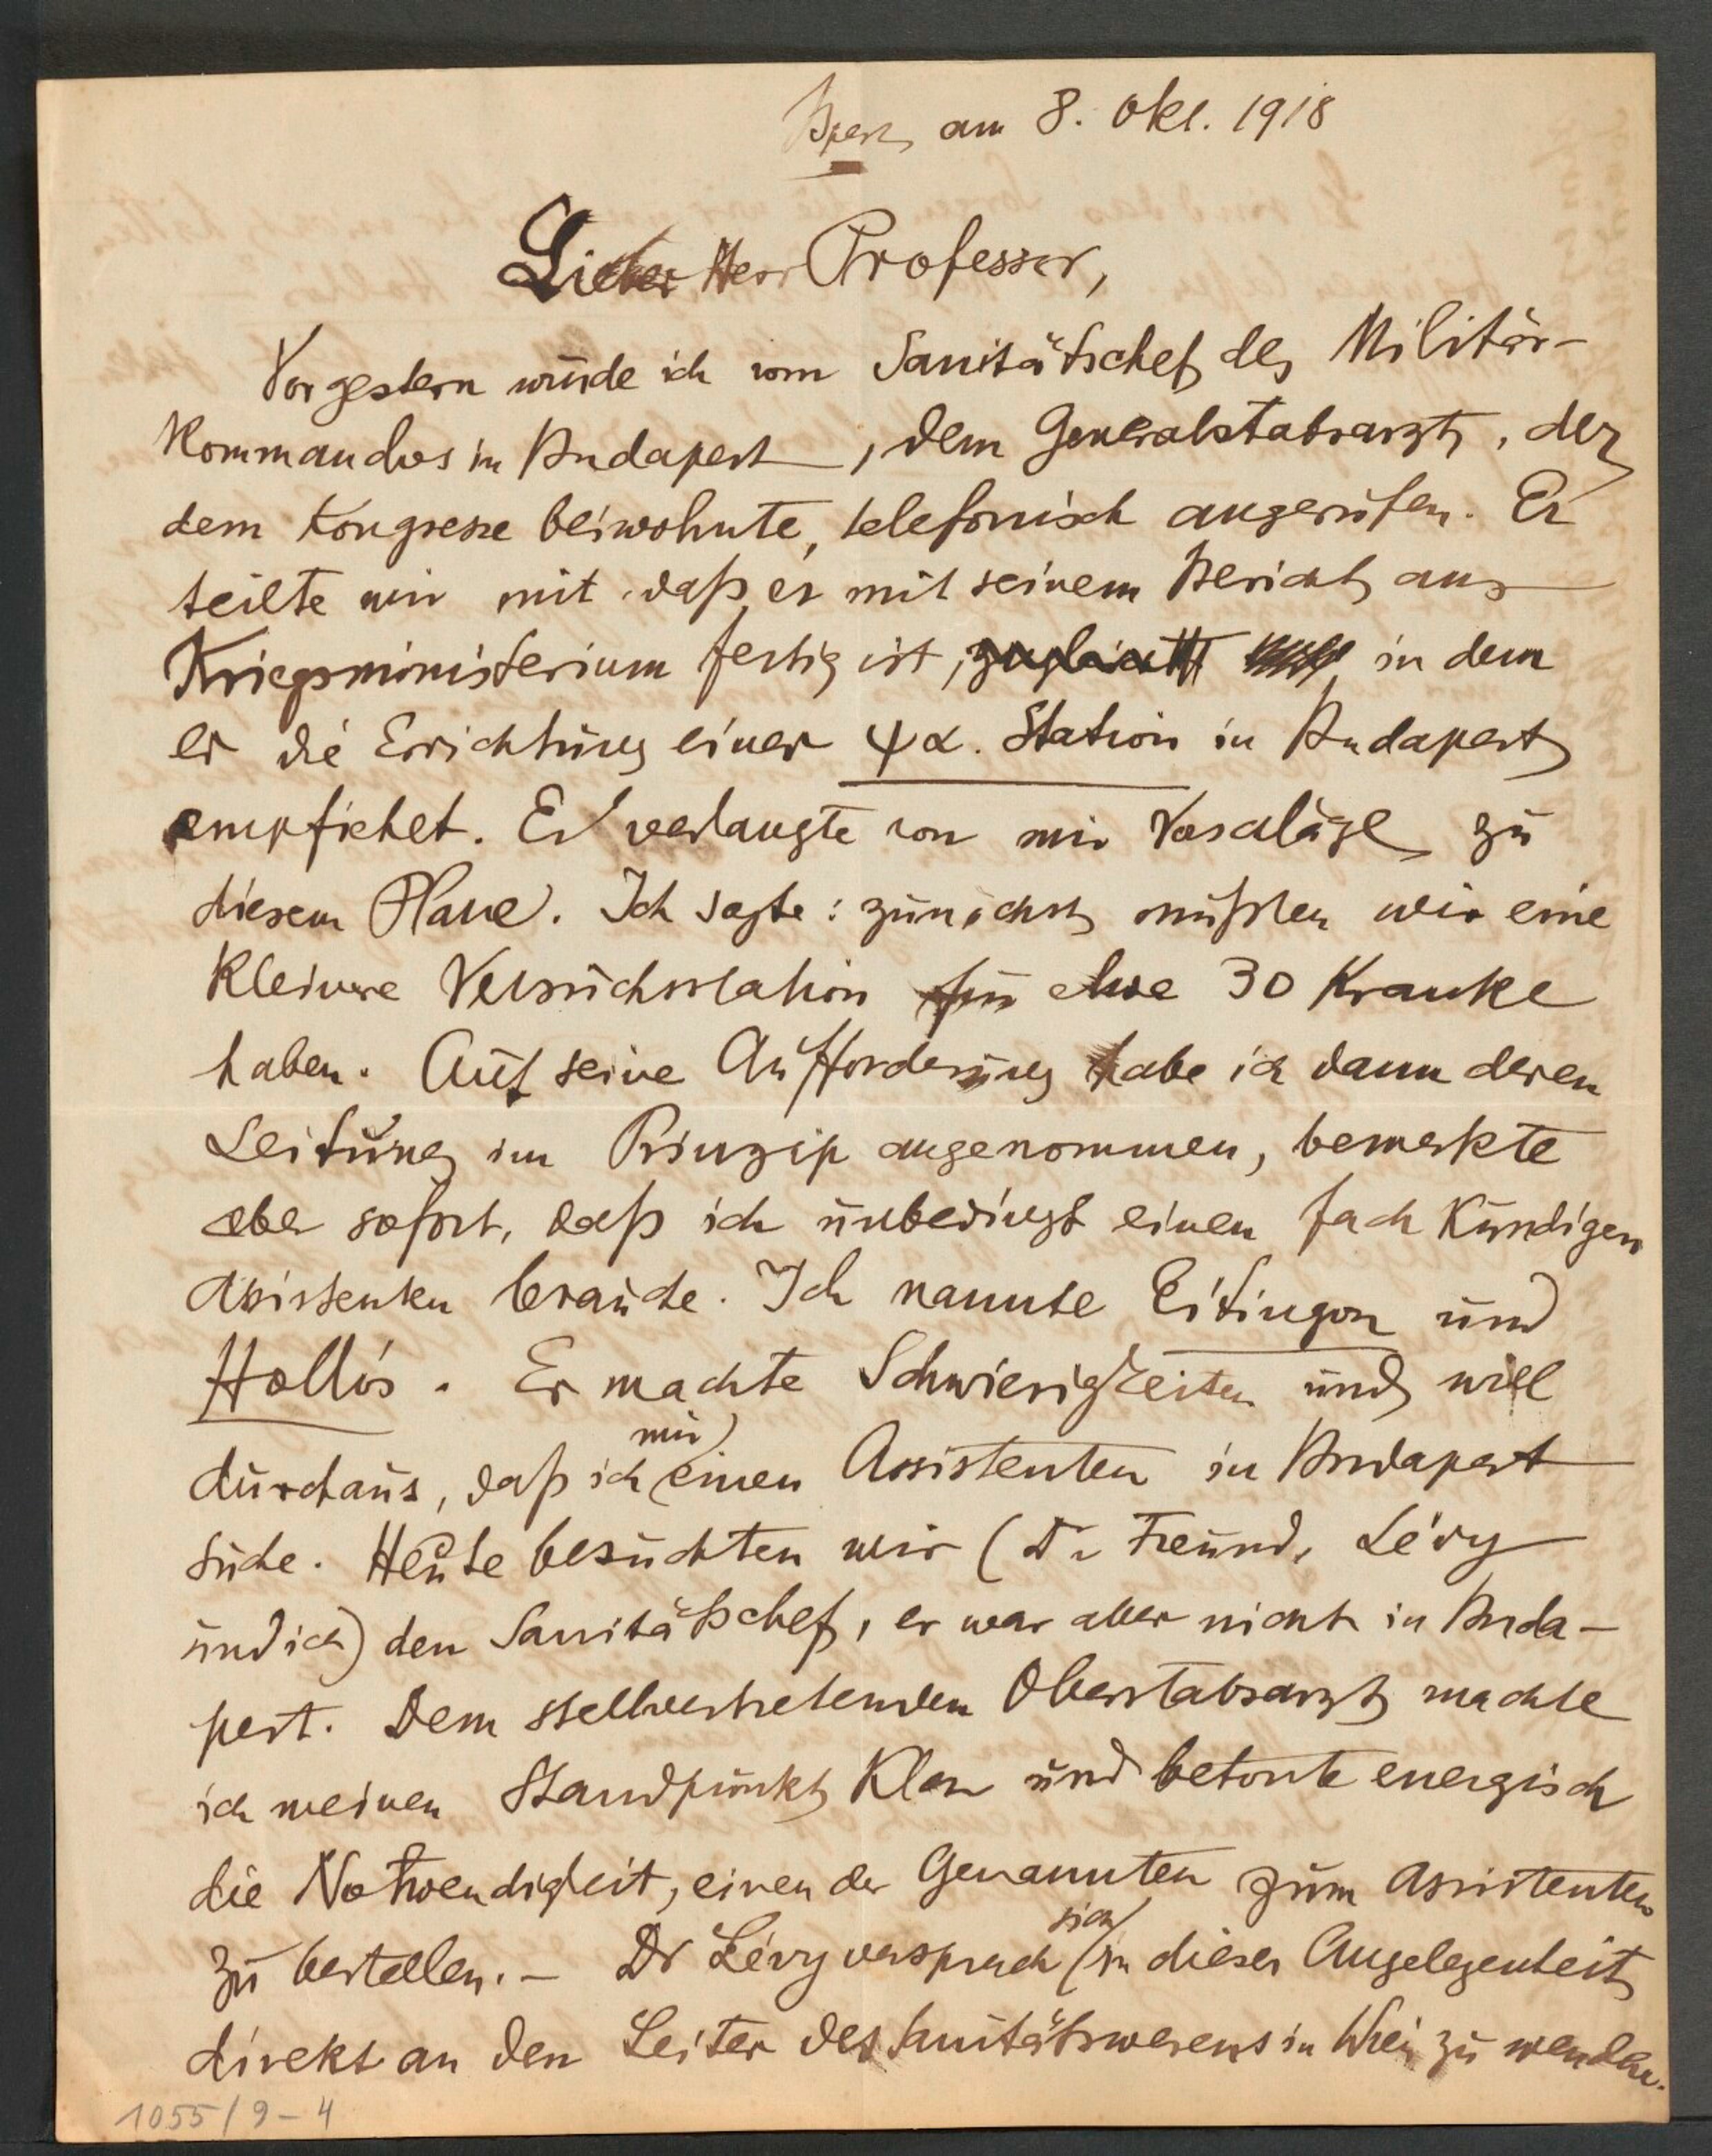 Bpest, am 8. Okt. 1918
Lieber Herr Professor,
Vorgestern wurde ich vom Sanitätschef des Militär-
Kommandos in Budapest, dem Generalstabsarzt, der
dem Kongresse beiwohnte, telefonisch angerufen. Er
teilte mir mit, daß er mit seinem Bericht ans
Kriegsministerium fertig ist, in dem
er die Errichtung einer ψα. Station in Budapest
empfiehlt. Er verlangte von mir Vorschläge zu
diesem Plane. Ich sagte: zunächst müßten wir eine
kleinere Versuchsstation für etwa 30 Kranke
haben. Auf seine Aufforderung habe ich dann deren
Leitung im Prinzip angenommen, bemerkte
aber sofort, daß ich unbedingt einen fachkundigen
Assistenten brauche. Ich nannte Eitingon und
Hollós. Er machte Schwierigkeiten und will
durchaus, daß ich mir einen Assistenten in Budapest
suche. Heute besuchten wir (Dr Freund, Lévy
und ich) den Sanitätschef, er war aber nicht in Buda-
pest. Dem stellvertretenden Oberstabsarzt machte
ich meinen Standpunkt klar und betonte energisch
die Notwendigkeit, einen der Genannten zum Assistenten
zu bestellen. – Dr Lévy versprach sich in dieser Angelegenheit
direkt an den Leiter des Sanitätswesens in Wien zu wenden.
1055/9-4